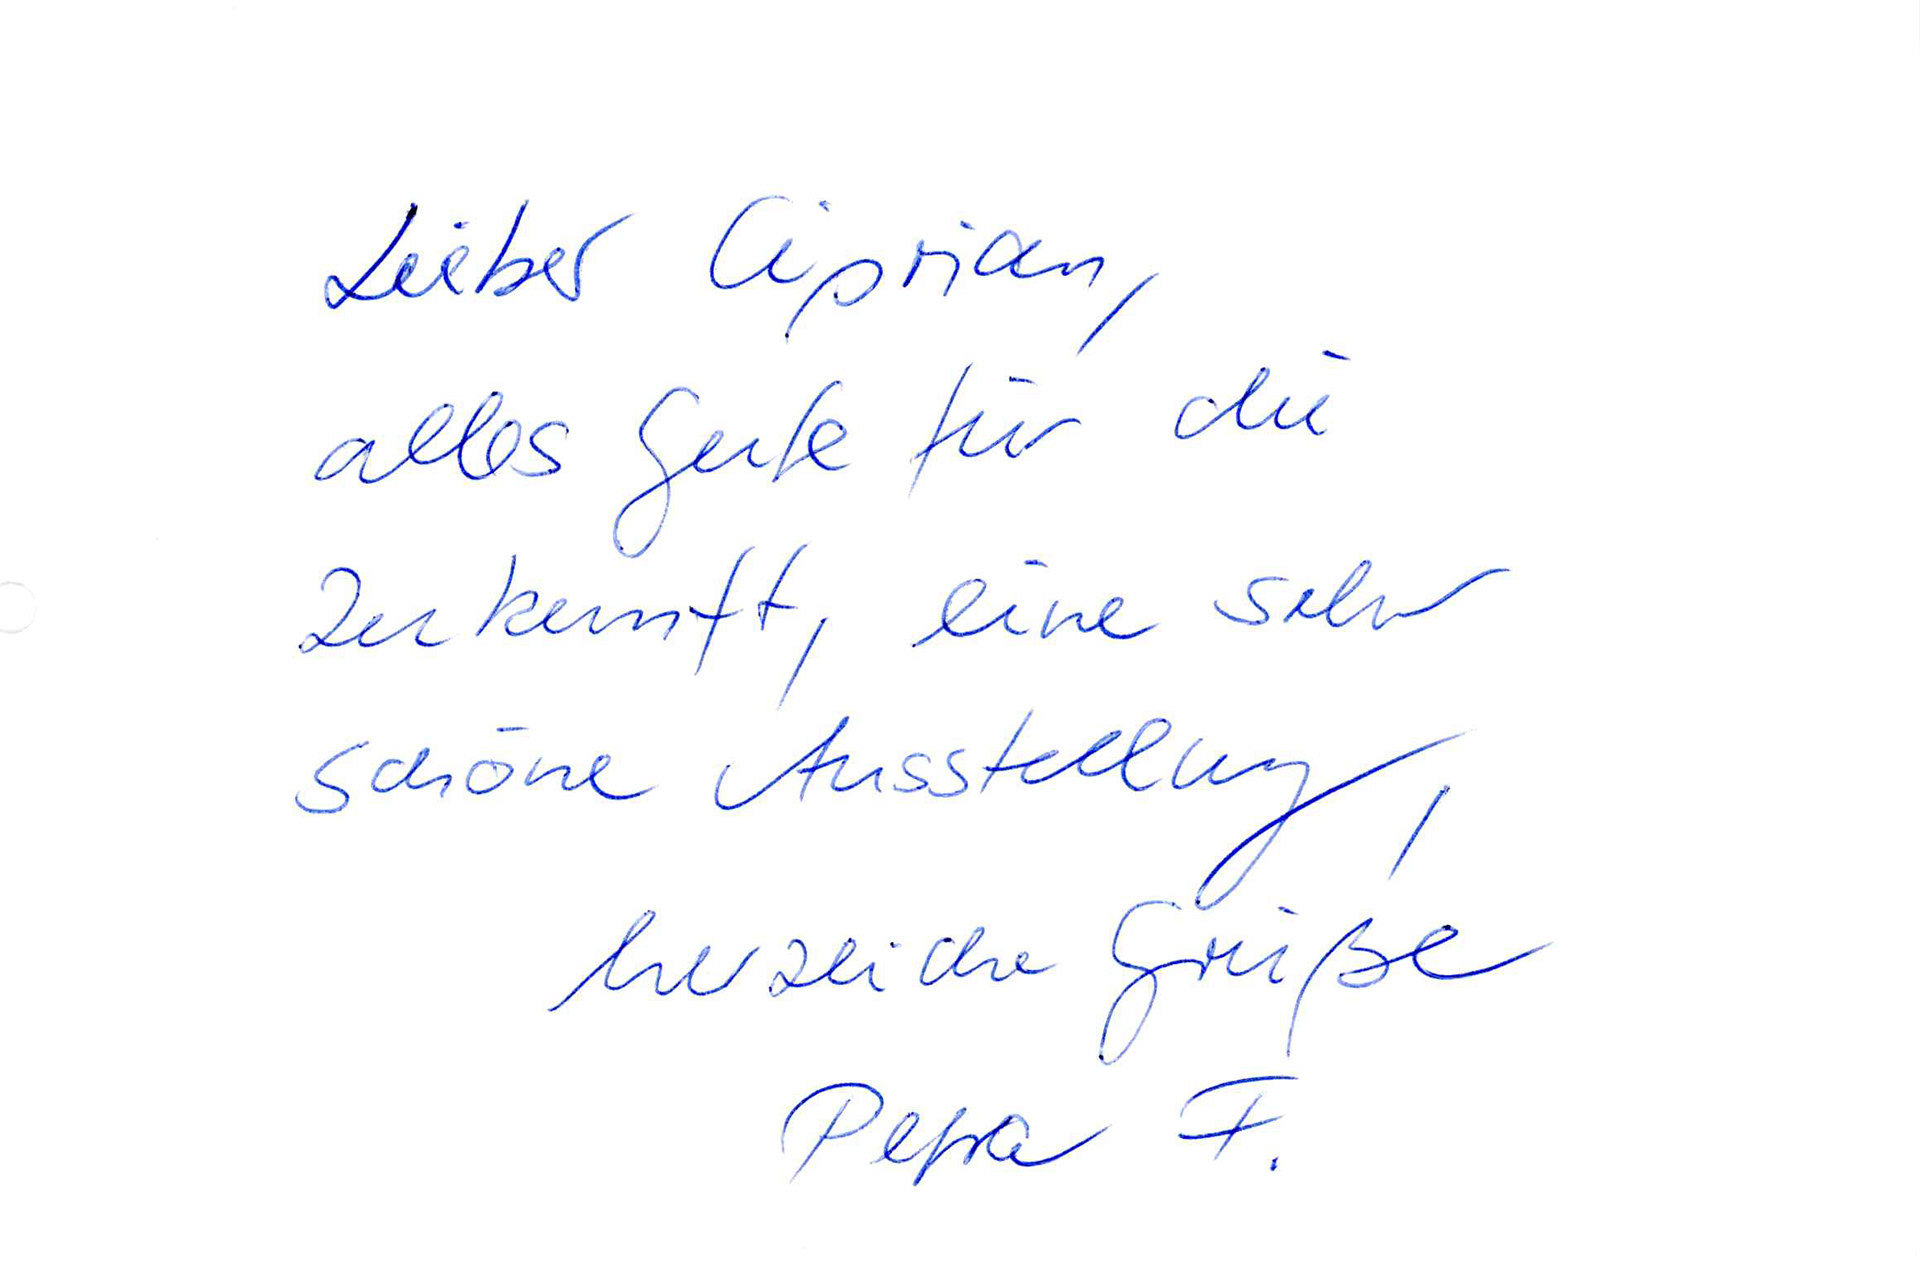 Lieber Ciprian,
alles Gute für die
Zukunft, eine sehr
schöne Ausstellung,
herzliche Grüße
Petra F.